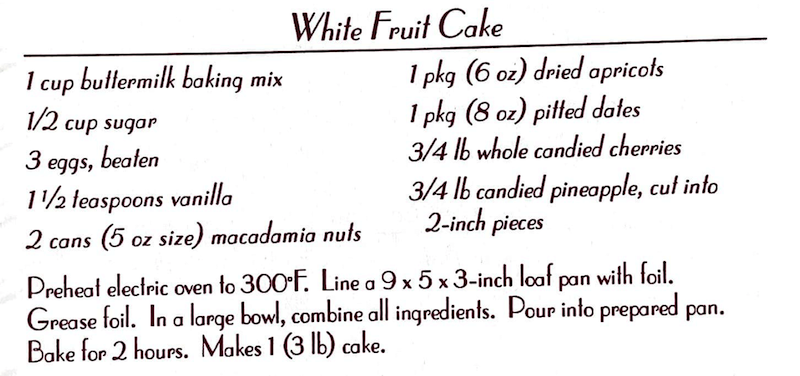 White Fruit Cake
1 cup buttermilk baking mix
1/2 cup sugar
3 eggs, beaten
1 1/2 teaspoons vanilla
2 cans (5 oz size) macadamia nuts
1 pkg (6 oz) dried apricots
1 pkg (8 oz) pitted dates
3/4 lb whole candied cherries
3/4 lb candied pineapple, cut into
2-inch pieces
Preheat electric oven to 300°F. Line a 9 x 5 x 3-inch loaf pan with foil.
Grease foil. In a large bowl, combine all ingredients. Pour into prepared pan.
Bake for 2 hours. Makes 1 (3 lb) cake.